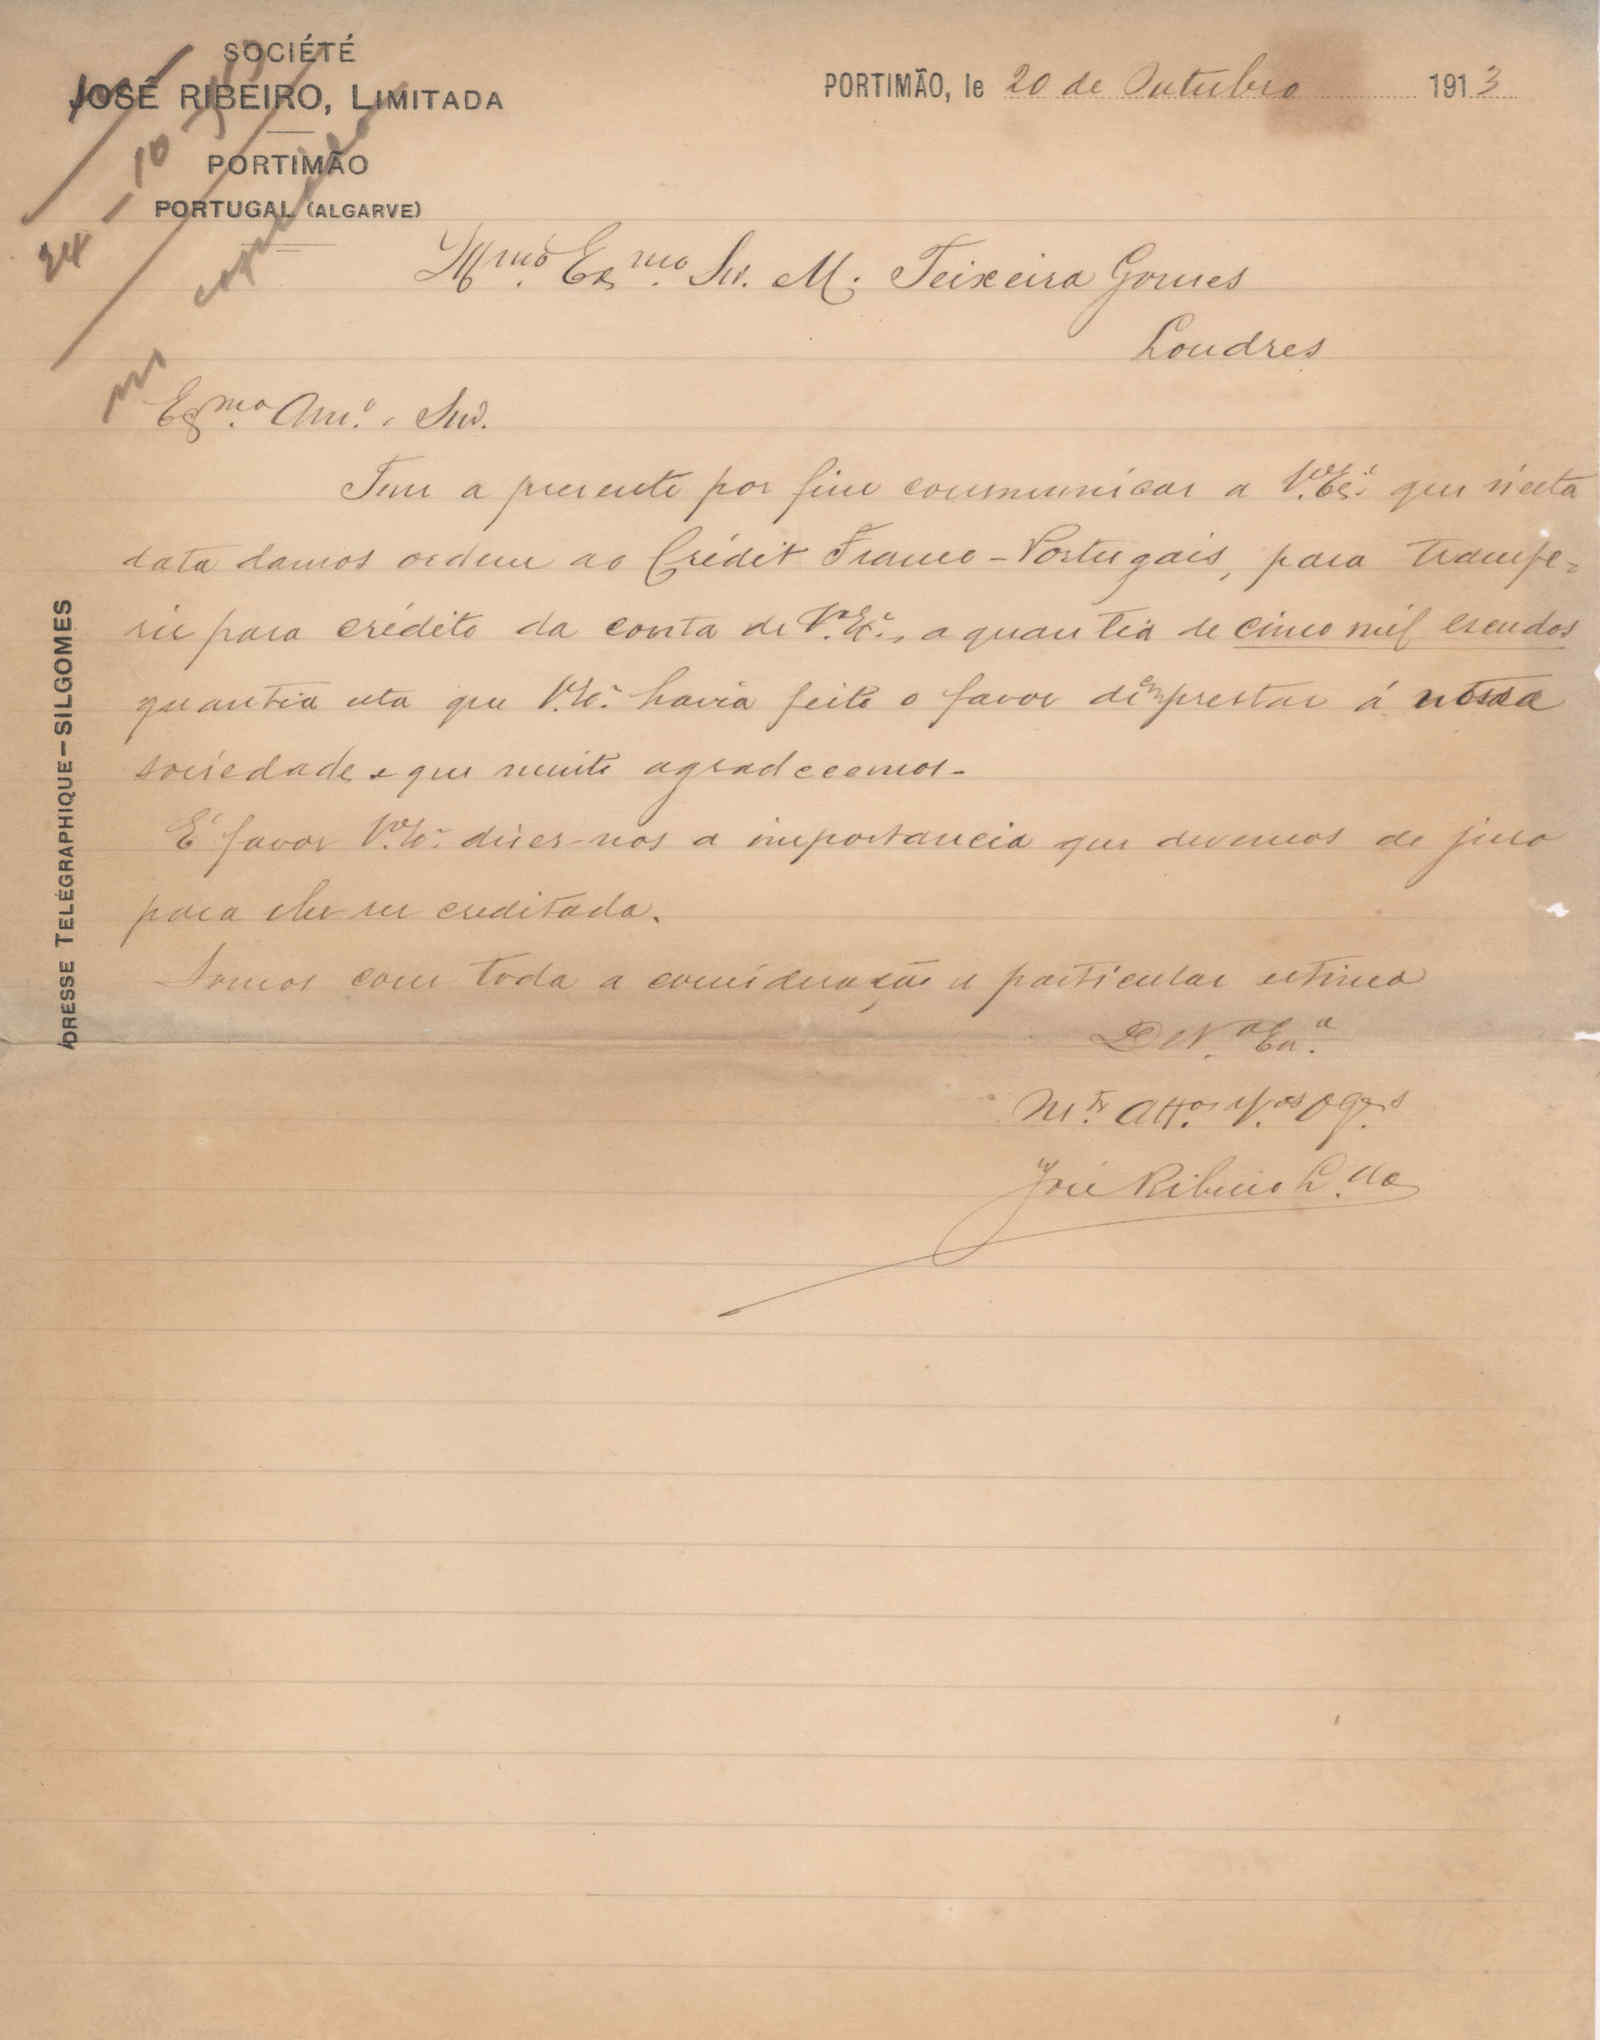 SOCIÉTÉ
JOSÉ RIBEIRO, LIMITADA
PORTIMÃO
PORTUGAL (ALGARVE)
PORTIMÃO, le 20 de Outubro 1913
24 - 10
Illmo. Exmo. Snr. M. Teixeira Gomes
Londres
Exmo. Amo. e Snr.
Tem a presente por fim communicar a V. Exa. que n'esta
data damos ordem ao Crédit Franco-Portugais, para transfe=
rir para crédito da conta de V. Exa., a quantia de cinco mil escudos
quantia esta que V. Exa. havia feito o favor d'emprestar á nossa
sociedade e que muito agradecemos.
É favor V. Exa. dizer-nos a importancia que devemos de juro
para lhe ser creditada.
Somos com toda a consideração e particular estima
De V. Exa.
Mto. Attos. Vos. Obgos
José Ribeiro L.da
ADRESSE TELÉGRAPHIQUE-SILGOMES